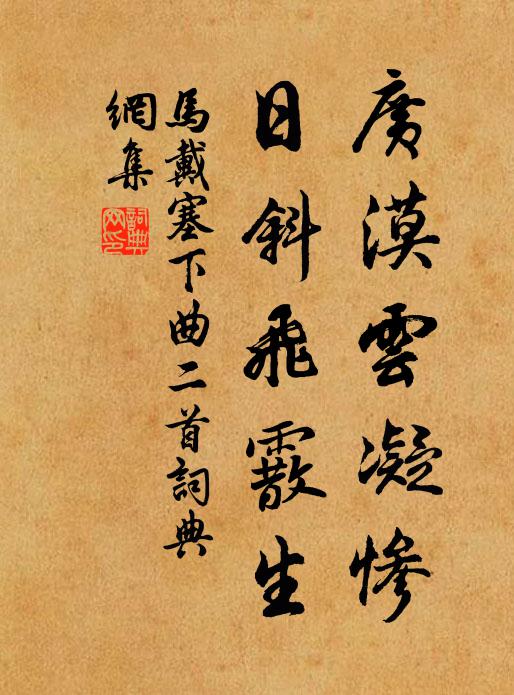 廣漠雲凝慘
日斜飛霰生
馬戴塞下曲二首詞典
網集
詞典網印